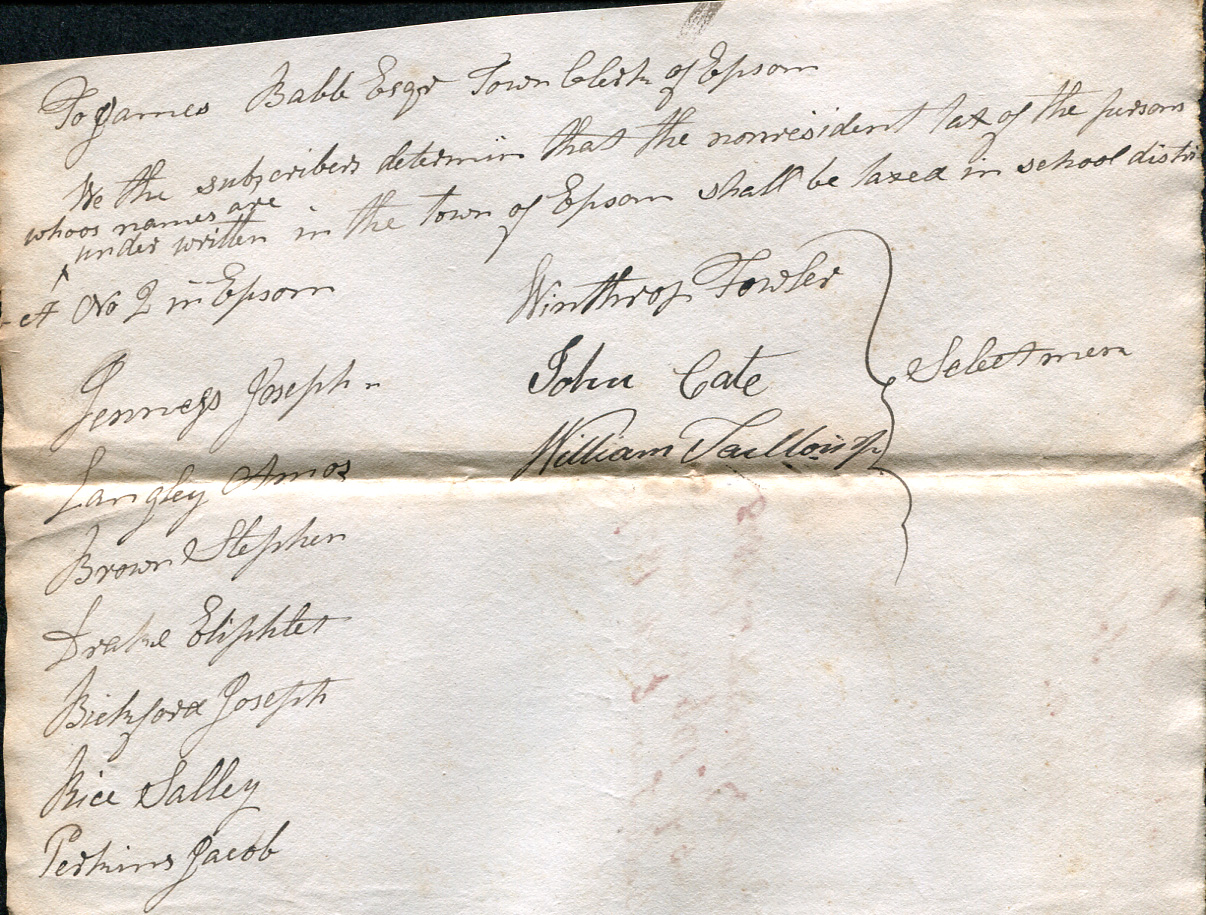 To James Babb Esqr Town Clerk of Epsom
We the subscribers determin that the nonresident tax of the persons
whoos names are
^ under written in the town of Epsom shall be taxed in school distri
-ct No 2 in Epsom
Winthrop Fowler
John Cate
William
Selectmen
Jenness Joseph
Langley Amos
Brown Stephen
Drake Eliphlet
Bickford Joseph
Rice Salley
Perkins Jacob